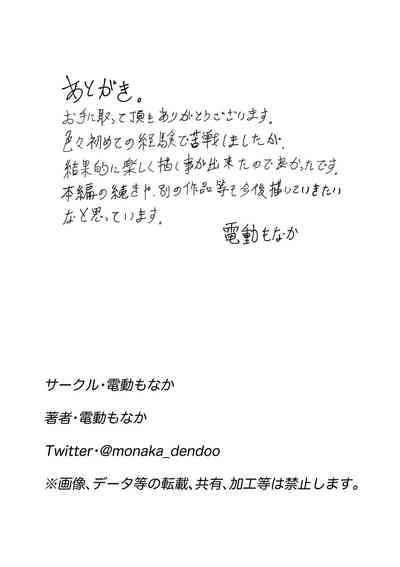 あとがき。
お手に取って頂きありがとうございます。
色々初めての経験で苦戦しましたが、
結果的に楽しく描く事が出来たので良かったです。
本編の続きや、別の作品等も今後描いていきたい
なと思っています。
電動もなか
サークル・電動もなか
著者・電動もなか
Twitter・@monaka_dendoo
※画像、データ等の転載、共有、加工等は禁止します。